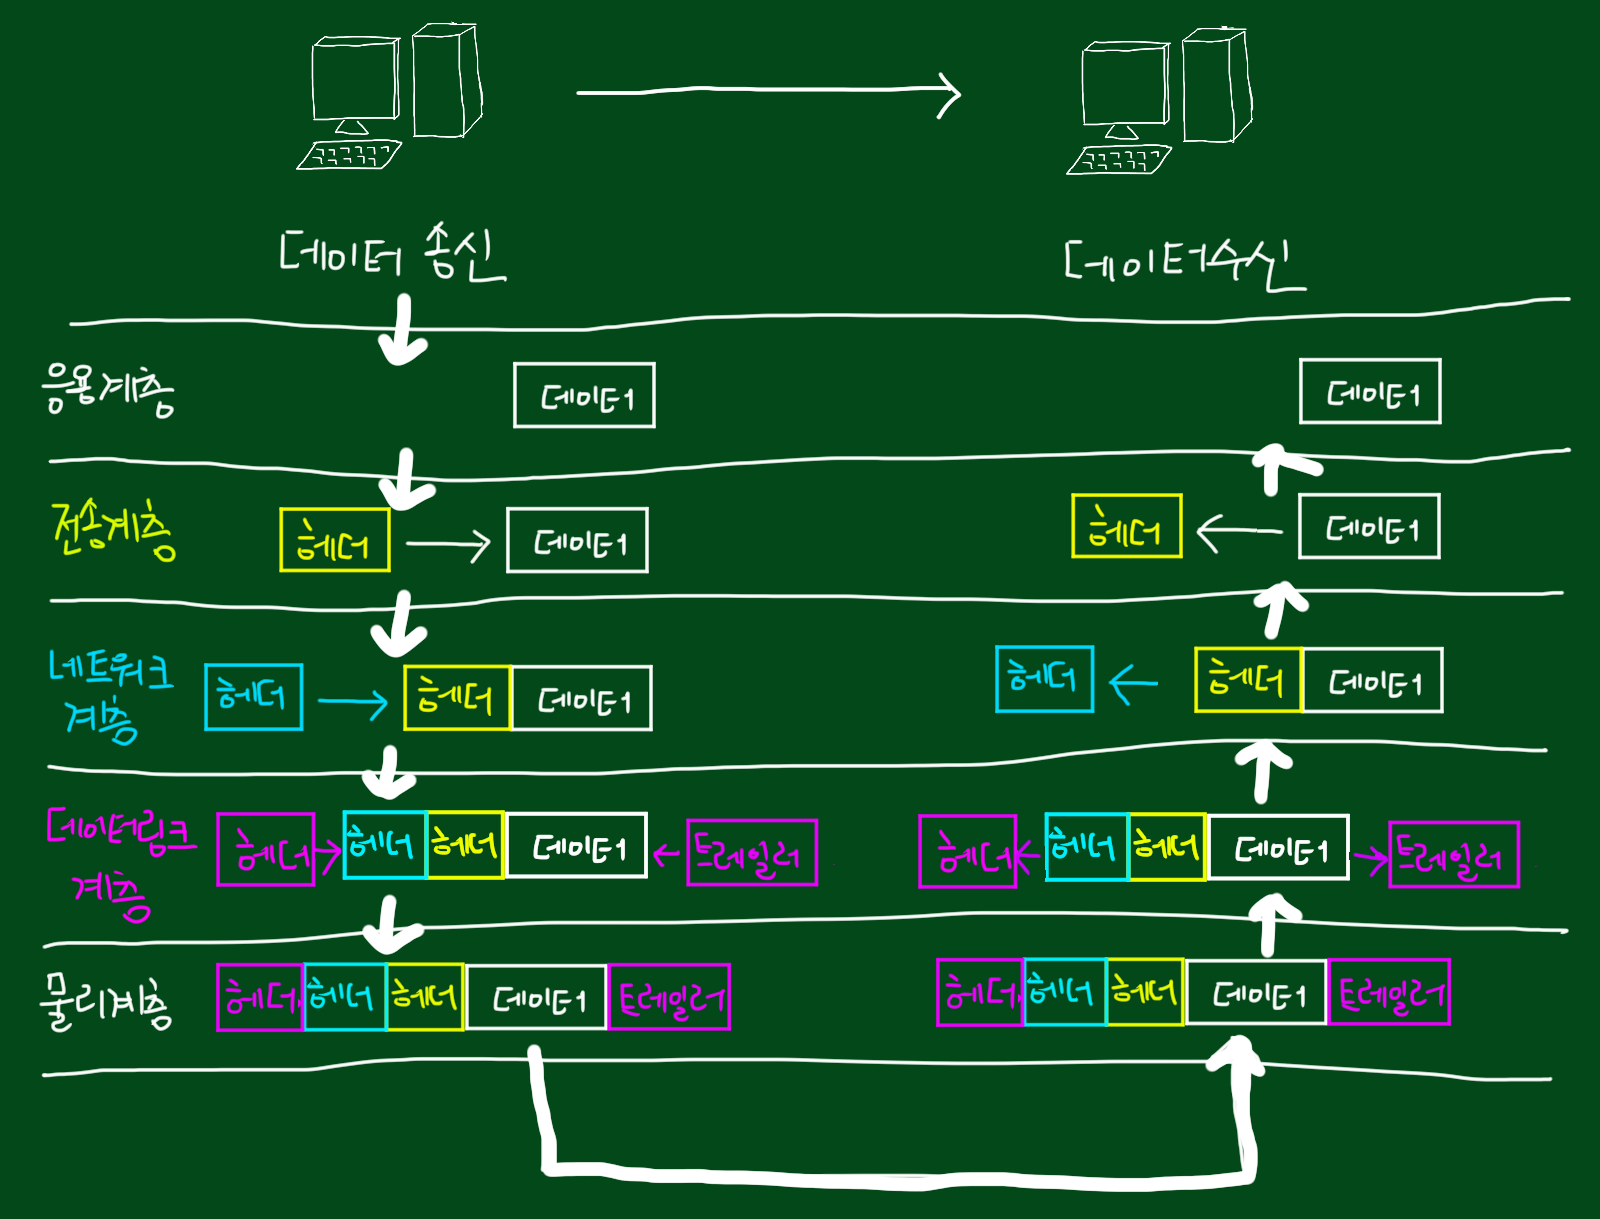 데이터 송신
데이터수신
응용계층
데이터
데이터
전송계층
헤더
데이터
헤더
데이터
네트워크
계층
헤더
헤더
데이터
헤더
헤더
데이터
데이터링크
계층
헤더
헤더
헤더
데이터
트레일러
헤더
헤더
헤더
데이터
트레일러
물리계층
헤더
헤더
헤더
데이터
트레일러
헤더
헤더
헤더
데이터
트레일러